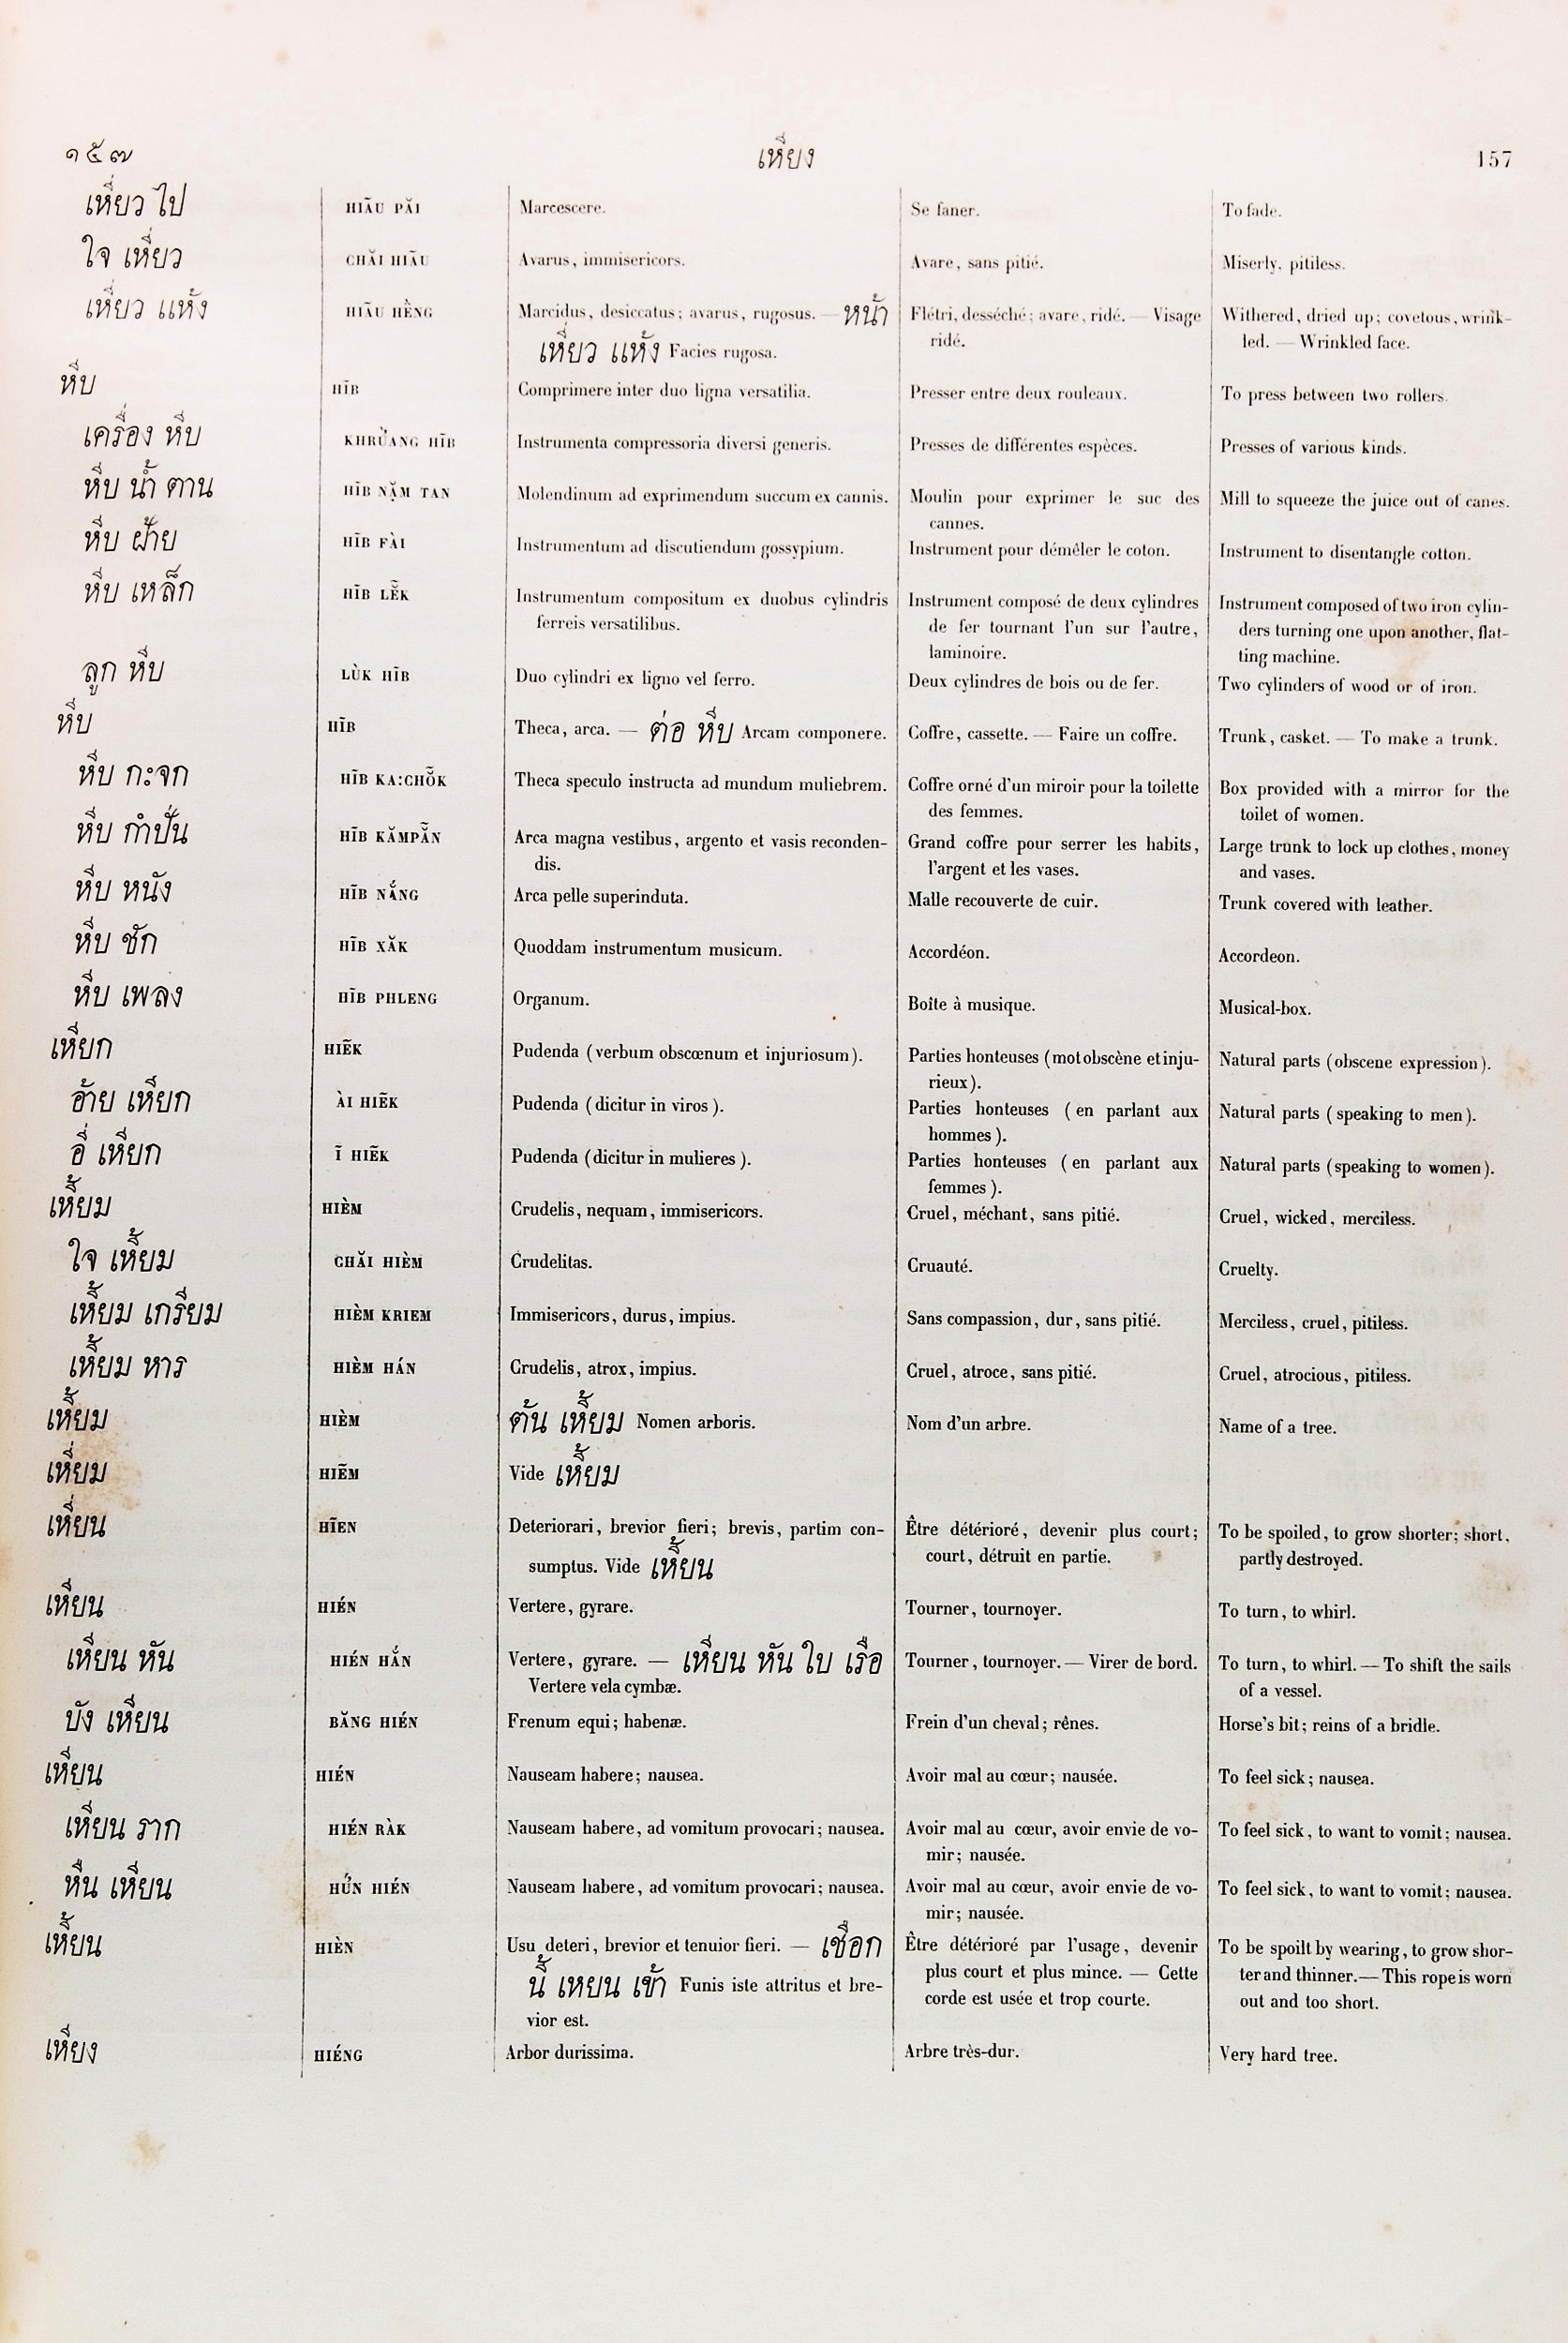 ๑๕๗ เหียง 157
เหี่ยว ไป HIÃU PĂI Marcescere. Se faner. To fade.
ใจ เหี่ยว CHĂI HIÃU Avarus, immisericors. Avare, sans pitié. Miserly, pitiless.
เหี่ยว แห้ง HIÃU HÈNG Marcidus, desiccatus; avarus, rugosus. — หน้า Flétri, desséché; avare, ridé. — Visage Withered, dried up; covetous, wrink-
เหี่ยว แห้ง Facies rugosa. ridé. led. — Wrinkled face.
หีบ HĨB Comprimere inter duo ligna versatilia. Presser entre deux rouleaux. To press between two rollers.
เครื่อง หีบ KHRU̔ÀNG HĨB Instrumenta compressoria diversi generis. Presses de différentes espèces. Presses of various kinds.
หีบ น้ำ ตาน HĨB NẶM TAN Molendinum ad exprimendum succum ex cannis. Moulin pour exprimer le suc des Mill to squeeze the juice out of canes.
cannes.
หีบ ฝ้าย HĨB FÀI Instrumentum ad discutiendum gossypium. Instrument pour démêler le coton. Instrument to disentangle cotton.
หีบ เหล็ก HĨB LĔ̃K Instrumentum compositum ex duobus cylindris Instrument composé de deux cylindres Instrument composed of two iron cylin-
ferreis versatilibus. de fer tournant l'un sur l'autre, ders turning one upon another, flat-
laminoire. ting machine.
ลูก หีบ LÙK HĨB Duo cylindri ex ligno vel ferro. Deux cylindres de bois ou de fer. Two cylinders of wood or of iron.
หีบ HĨB Theca, arca. — ต่อ หีบ Arcam componere. Coffre, cassette. — Faire un coffre. Trunk, casket. — To make a trunk.
หีบ กะจก HĨB KA:CHŎ̃K Theca speculo instructa ad mundum muliebrem. Coffre orné d'un miroir pour la toilette Box provided with a mirror for the
des femmes. toilet of women.
หีบ กำปั่น HĨB KĂMPẴN Arca magna vestibus, argento et vasis reconden- Grand coffre pour serrer les habits, Large trunk to lock up clothes, money
dis. l'argent et les vases. and vases.
หีบ หนัง HĨB NẮNG Arca pelle superinduta. Malle recouverte de cuir. Trunk covered with leather.
หีบ ชัก HĨB XĂK Quoddam instrumentum musicum. Accordéon. Accordeon.
หีบ เพลง HĨB PHLENG Organum. Boîte à musique. Musical-box.
เหียก HIẼK Pudenda (verbum obscœnum et injuriosum). Parties honteuses (mot obscène et inju- Natural parts (obscene expression).
rieux).
อ้าย เหียก ÀI HIẼK Pudenda (dicitur in viros). Parties honteuses (en parlant aux Natural parts (speaking to men).
hommes).
อี่ เหียก Ĩ HIẼK Pudenda (dicitur in mulieres). Parties honteuses (en parlant aux Natural parts (speaking to women).
femmes).
เหี้ยม HIÈM Crudelis, nequam, immisericors. Cruel, méchant, sans pitié. Cruel, wicked, merciless.
ใจ เหี้ยม CHĂI HIÈM Crudelitas. Cruauté. Cruelty.
เหี้ยม เกรียม HIÈM KRIEM Immisericors, durus, impius. Sans compassion, dur, sans pitié. Merciless, cruel, pitiless.
เหี้ยม หาร HIÈM HÁN Crudelis, atrox, impius. Cruel, atroce, sans pitié. Cruel, atrocious, pitiless.
เหี้ยม HIÈM ต้น เหี้ยม Nomen arboris. Nom d'un arbre. Name of a tree.
เหี่ยม HIẼM Vide เหี้ยม
เหี่ยน HĨEN Deteriorari, brevior fieri; brevis, partim con- Être détérioré, devenir plus court; To be spoiled, to grow shorter; short,
sumptus. Vide เหี้ยน court, détruit en partie. partly destroyed.
เหียน HIÉN Vertere, gyrare. Tourner, tournoyer. To turn, to whirl.
เหียน หัน HIÉN HẮN Vertere, gyrare. — เหียน หัน ใบ เรือ Tourner, tournoyer. — Virer de bord. To turn, to whirl. — To shift the sails
Vertere vela cymbæ. of a vessel.
บัง เหียน BĂNG HIÉN Frenum equi; habenæ. Frein d'un cheval; rênes. Horse's bit; reins of a bridle.
เหียน HIÉN Nauseam habere; nausea. Avoir mal au cœur; nausée. To feel sick; nausea.
เหียน ราก HIÉN RÀK Nauseam habere, ad vomitum provocari; nausea. Avoir mal au cœur, avoir envie de vo- To feel sick, to want to vomit; nausea.
mir; nausée.
หืน เหียน HỨN HIÉN Nauseam habere, ad vomitum provocari; nausea. Avoir mal au cœur, avoir envie de vo- To feel sick, to want to vomit; nausea.
mir; nausée.
เหี้ยน HIÈN Usu deteri, brevior et tenuior fieri. — เชือก Être détérioré par l'usage, devenir To be spoilt by wearing, to grow shor-
นี้ เหยน เข้า Funis iste attritus et bre- plus court et plus mince. — Cette ter and thinner. — This rope is worn
vior est. corde est usée et trop courte. out and too short.
เหียง HIÉNG Arbor durissima. Arbre très-dur. Very hard tree.